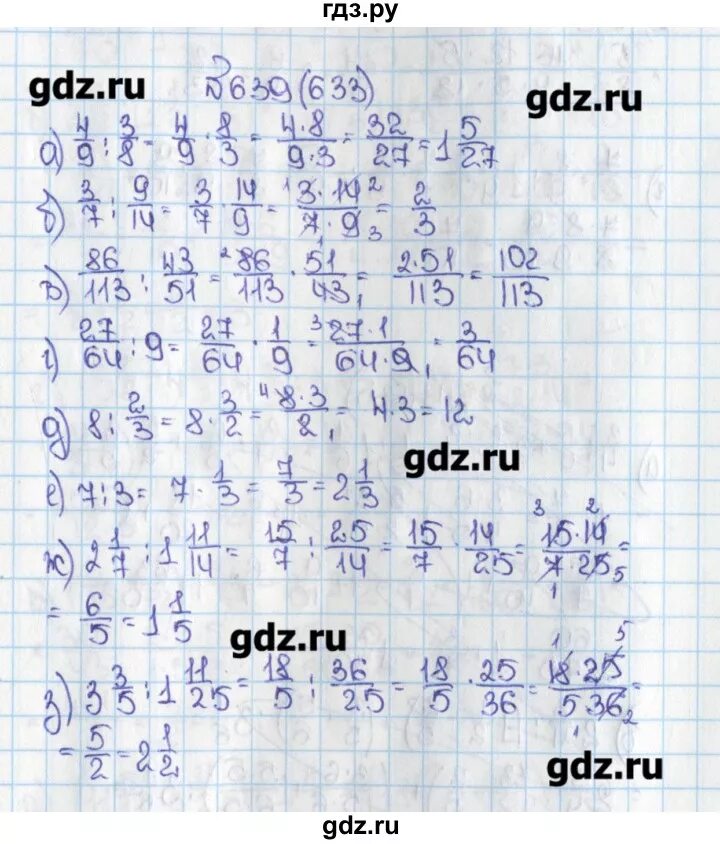 гдз.ру
gdz.ru
№639(633)
gdz.ru
а) 4/9 : 3/8 = 4/9 · 8/3 = 4·8/9·3 = 32/27 = 1 5/27
б) 3/7 : 9/14 = 3/7 · 14/9 = 3·14/7·9 = 2/3
в) 86/113 : 43/51 = 86/113 · 51/43 = 2·51/113 = 102/113
г) 27/64 : 9 = 27/64 · 1/9 = 27·1/64·9 = 3/64
д) 8 : 2/3 = 8 · 3/2 = 8·3/2 = 4·3 = 12
gdz.ru
е) 7 : 3 = 7 · 1/3 = 7/3 = 2 1/3
ж) 2 1/7 : 1 11/14 = 15/7 : 25/14 = 15/7 · 14/25 = 15·14/7·25 =
= 6/5 = 1 1/5
gdz.ru
з) 3 3/5 : 1 11/25 = 18/5 : 36/25 = 18/5 · 25/36 = 18·25/5 36 =
= 5/2 = 2 1/2
gdz.ru
gdz.ru